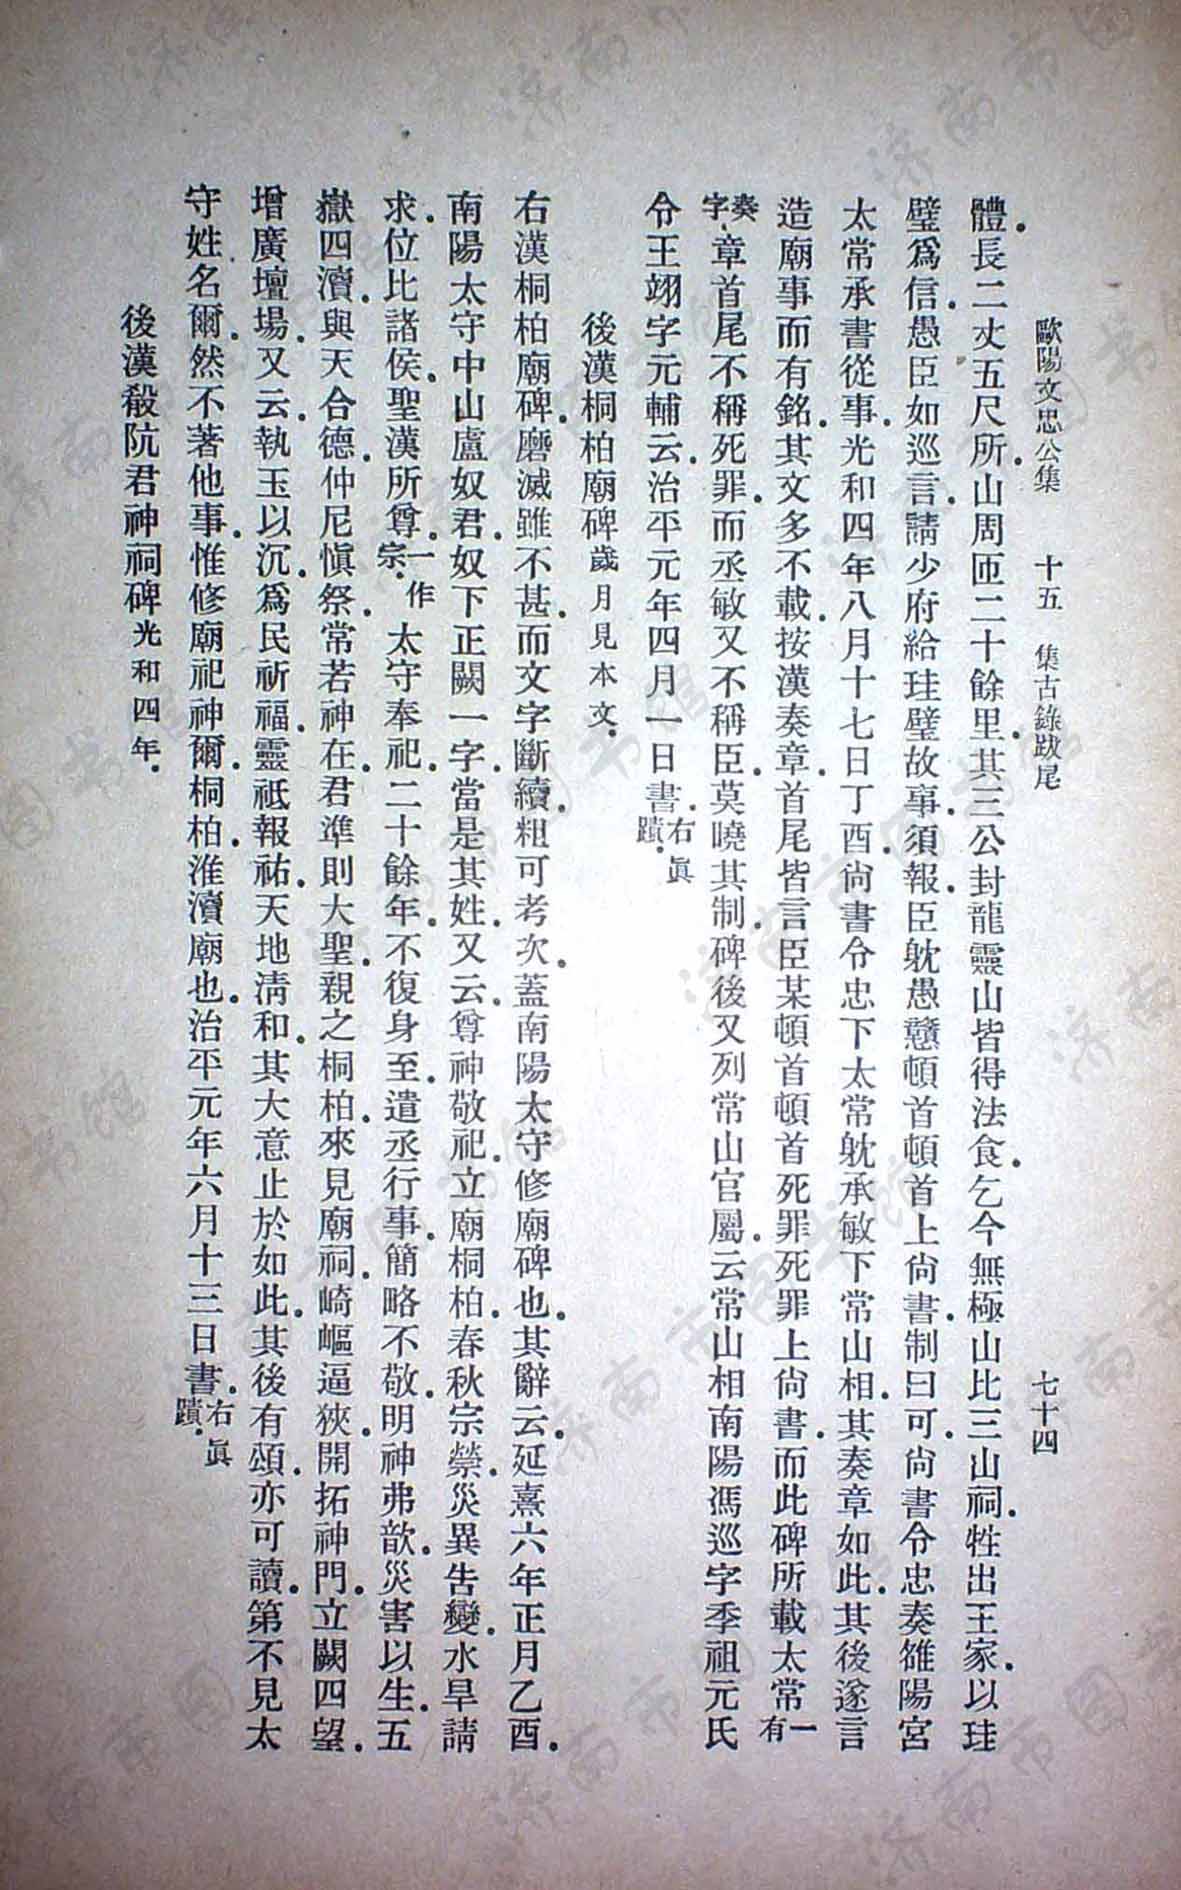 歐陽文忠公集　十五　集古錄跋尾　七十四
體。長二丈五尺所。山周匝二十餘里。其三公封龍靈山皆得法食。乞今無極山比三山祠。牲出王家。以珪
璧爲信。愚臣如巡言。請少府給珪璧故事。須報。臣躭愚戇頓首頓首上尙書。制曰可。尙書令忠奏雒陽宮
太常承書從事。光和四年八月十七日丁酉。尙書令忠下太常躭承敏下常山相。其奏章如此。其後遂言
造廟事而有銘。其文多不載。按漢奏章。首尾皆言臣某頓首頓首死罪死罪上尙書。而此碑所載太常一有
奏字。章首尾不稱死罪。而丞敏又不稱臣。莫曉其制。碑後又列常山官屬。云常山相南陽馮巡字季祖元氏
令王翊字元輔云。治平元年四月一日書。右眞蹟。
後漢桐柏廟碑歲月見本文。
右漢桐柏廟碑。磨滅雖不甚。而文字斷續。粗可考次。蓋南陽太守修廟碑也。其辭云。延熹六年正月乙酉。
南陽太守中山盧奴君。奴下正闕一字。當是其姓。又云。尊神敬祀。立廟桐柏。春秋宗禜。災異告變。水旱請
求。位比諸侯。聖漢所尊。一作宗。太守奉祀。二十餘年。不復身至。遣丞行事。簡略不敬。明神弗歆。災害以生。五
嶽四瀆。與天合德。仲尼愼祭。常若神在。君準則大聖。親之桐柏。來見廟祠。崎嶇逼狹。開拓神門。立闕四望。
增廣壇場。又云。執玉以沉。爲民祈福。靈祇報祐。天地淸和。其大意止於如此。其後有頌。亦可讀。第不見太
守姓名爾。然不著他事。惟修廟祀神爾。桐柏。淮瀆廟也。治平元年六月十三日書。右眞蹟。
後漢殽阬君神祠碑光和四年。